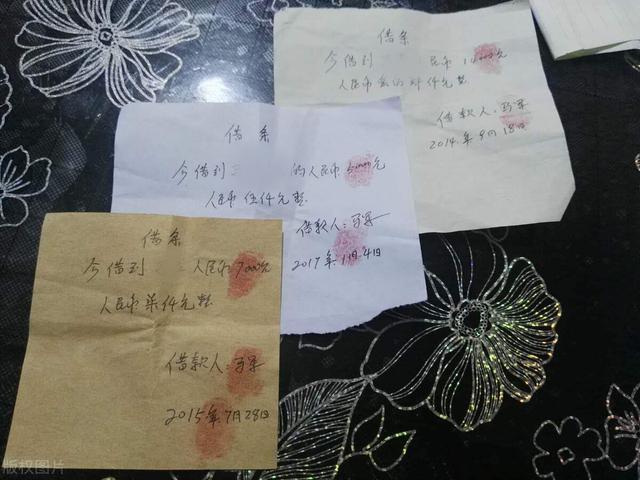 借条
今借到 民币
人民币
借款人:马军
2014年9月18日
借条
今借到 的人民币5000元
人民币伍仟元整
借款人:马军
2017年1月4日
借条
今借到 人民币7000元
人民币柒仟元整
借款人:马军
2015年7月28日
版权图片